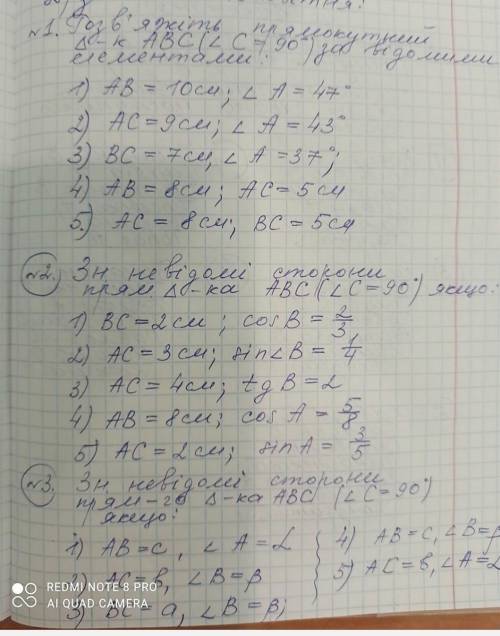 №1. Розв'яжіть прямокутний
Δ-к ABC (∠C = 90°) за відомими
елементами:
1) AB = 10см; ∠A = 47°
2) AC = 9см; ∠A = 43°
3) BC = 7см, ∠A = 37°;
4) AB = 8см; AC = 5см
5) AC = 8см; BC = 5см
№2. Зн. невідомі сторони
прям. Δ-ка ABC (∠C = 90°) якщо:
1) BC = 2см; cosB = 2/3
2) AC = 3см; sin∠B = 1/4
3) AC = 4см; tgB = 2
4) AB = 8см; cos A = 5/8
5) AC = 2см; sin A = 3/5
№3. Зн. невідомі сторони
прям-го Δ-ка ABC (∠C = 90°)
якщо:
1) AB = c, ∠A = α
2) AC = b, ∠B = β
3) BC = a, ∠B = β;
4) AB = c, ∠B = β
5) AC = b, ∠A = α
REDMI NOTE 8 PRO
AI QUAD CAMERA